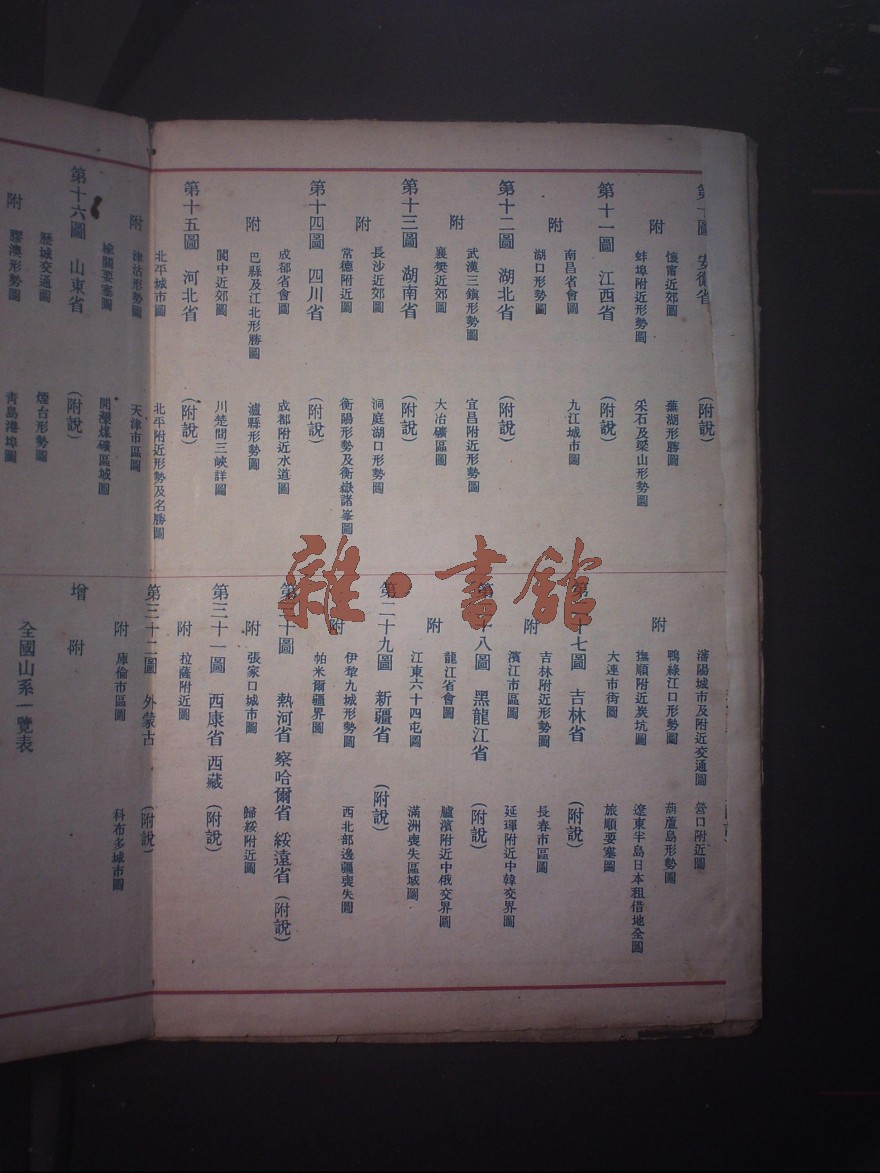 安徽省 (附說)
附 懷甯近郊圖 蕪湖形勝圖
蚌埠附近形勢圖 采石及梁山形勢圖
第十一圖 江西省 (附說)
附 南昌省會圖 九江城市圖
湖口形勢圖
第十二圖 湖北省 (附說)
附 武漢三鎮形勢圖 宜昌附近形勢圖
襄樊近郊圖 大冶礦區圖
第十三圖 湖南省 (附說)
附 長沙近郊圖 洞庭湖口形勢圖
常德附近圖 衡陽形勢及衡嶽諸峯圖
第十四圖 四川省 (附說)
附 成都省會圖 成都附近水道圖
巴縣及江北形勝圖 瀘縣形勢圖
閬中近郊圖 川楚間三峽詳圖
第十五圖 河北省 (附說)
附 北平城市圖 北平附近形勢及名勝圖
津沽形勢圖 天津市區圖
榆關要塞圖 開灤煤礦區域圖
第十六圖 山東省 (附說)
附 歷城交通圖 煙台形勢圖
膠澳形勢圖 青島港埠圖
瀋陽城市及附近交通圖 營口附近圖
附 鴨綠江口形勢圖 葫蘆島形勢圖
撫順附近炭坑圖 遼東半島日本租借地全圖
大連市街圖 旅順要塞圖
七圖 吉林省 (附說)
附 吉林附近形勢圖 長春市區圖
濱江市區圖 延琿附近中韓交界圖
第 八圖 黑龍江省 (附說)
附 龍江省會圖 臚濱附近中俄交界圖
江東六十四屯圖 滿洲喪失區域圖
第二十九圖 新疆省 (附說)
附 伊犂九城形勢圖 西北部邊疆喪失圖
帕米爾疆界圖
第三十圖 熱河省 察哈爾省 綏遠省 (附說)
附 張家口城市圖 歸綏附近圖
第三十一圖 西康省 西藏 (附說)
附 拉薩附近圖
第三十二圖 外蒙古 (附說)
附 庫倫市區圖 科布多城市圖
增附
全國山系一覽表
雜·書館